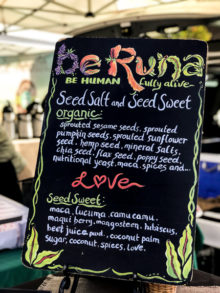 be Runa
BE HUMAN fully alive
Seed Salt and Seed Sweet
organic:
sprouted sesame seeds, sprouted
pumpkin seeds, sprouted sunflower
seed, hemp seed, mineral salts,
chia seed, flax seed, poppy seed,
nutritional yeast, maca, spices, and...
Love
Seed Sweet:
maca, lucuma, camu camu,
maqui berry, mangosteen, hibiscus,
beet juice pwd., coconut palm
sugar, coconut, spices, Love.